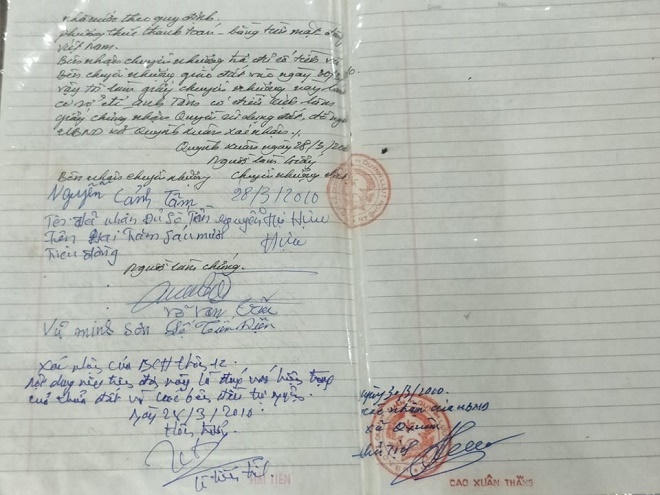 nhà nước theo quy định.
phương thức thanh toán - bằng tiền mặt
Việt Nam.
Bên nhận chuyển nhượng trả đủ số tiền và
bên chuyển nhượng giao đất vào ngày
vậy tôi làm giấy chuyển nhượng này làm
cơ sở để anh Tâm có điều kiện làm
giấy chứng nhận quyền sử dụng đất, đề nghị
UBND xã Quỳnh Xuân xác nhận./.
Quỳnh Xuân ngày 28/3/20
Người làm giấy
Bên nhận chuyển nhượng chuyển nhượng
Nguyễn Cảnh Tâm 28/3/2010
Tôi đã nhận đủ số Tiền Nguyễn Thị Hựu
Tiền Hai Trăm Sáu mươi Hựu
Triệu đồng
Người làm chứng.
Võ Văn
Vũ minh Sơn
Xác nhận của BCH thôn 12.
Nội dung nêu trên đây là đúng với hiện trạng
của thửa đất và các bên đều tự nguyện.
Ngày 28/3/2010.
ngày 30/3/2010.
xác nhận của UBND
xã Q Xuân
chủ tịch
CAO XUÂN THẮNG